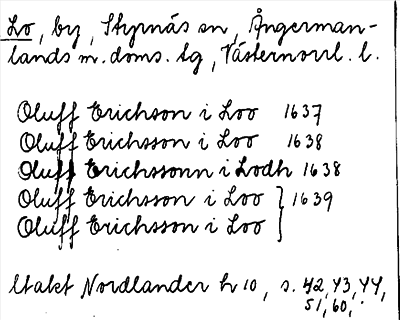 Lo, by, Styrnäs sn, Ångerman-
lands m. doms. tg, Västernorrl. l.
Oluff Erichson i Loo 1637
Oluff Erichsson i Loo 1638
Oluff Erichssonn i Lodh 1638
Oluff Erichsson i Loo } 1639
Oluff Erichsson i Loo
Utakt Nordlander h 10, s. 42, 43, 44,
51, 60, .